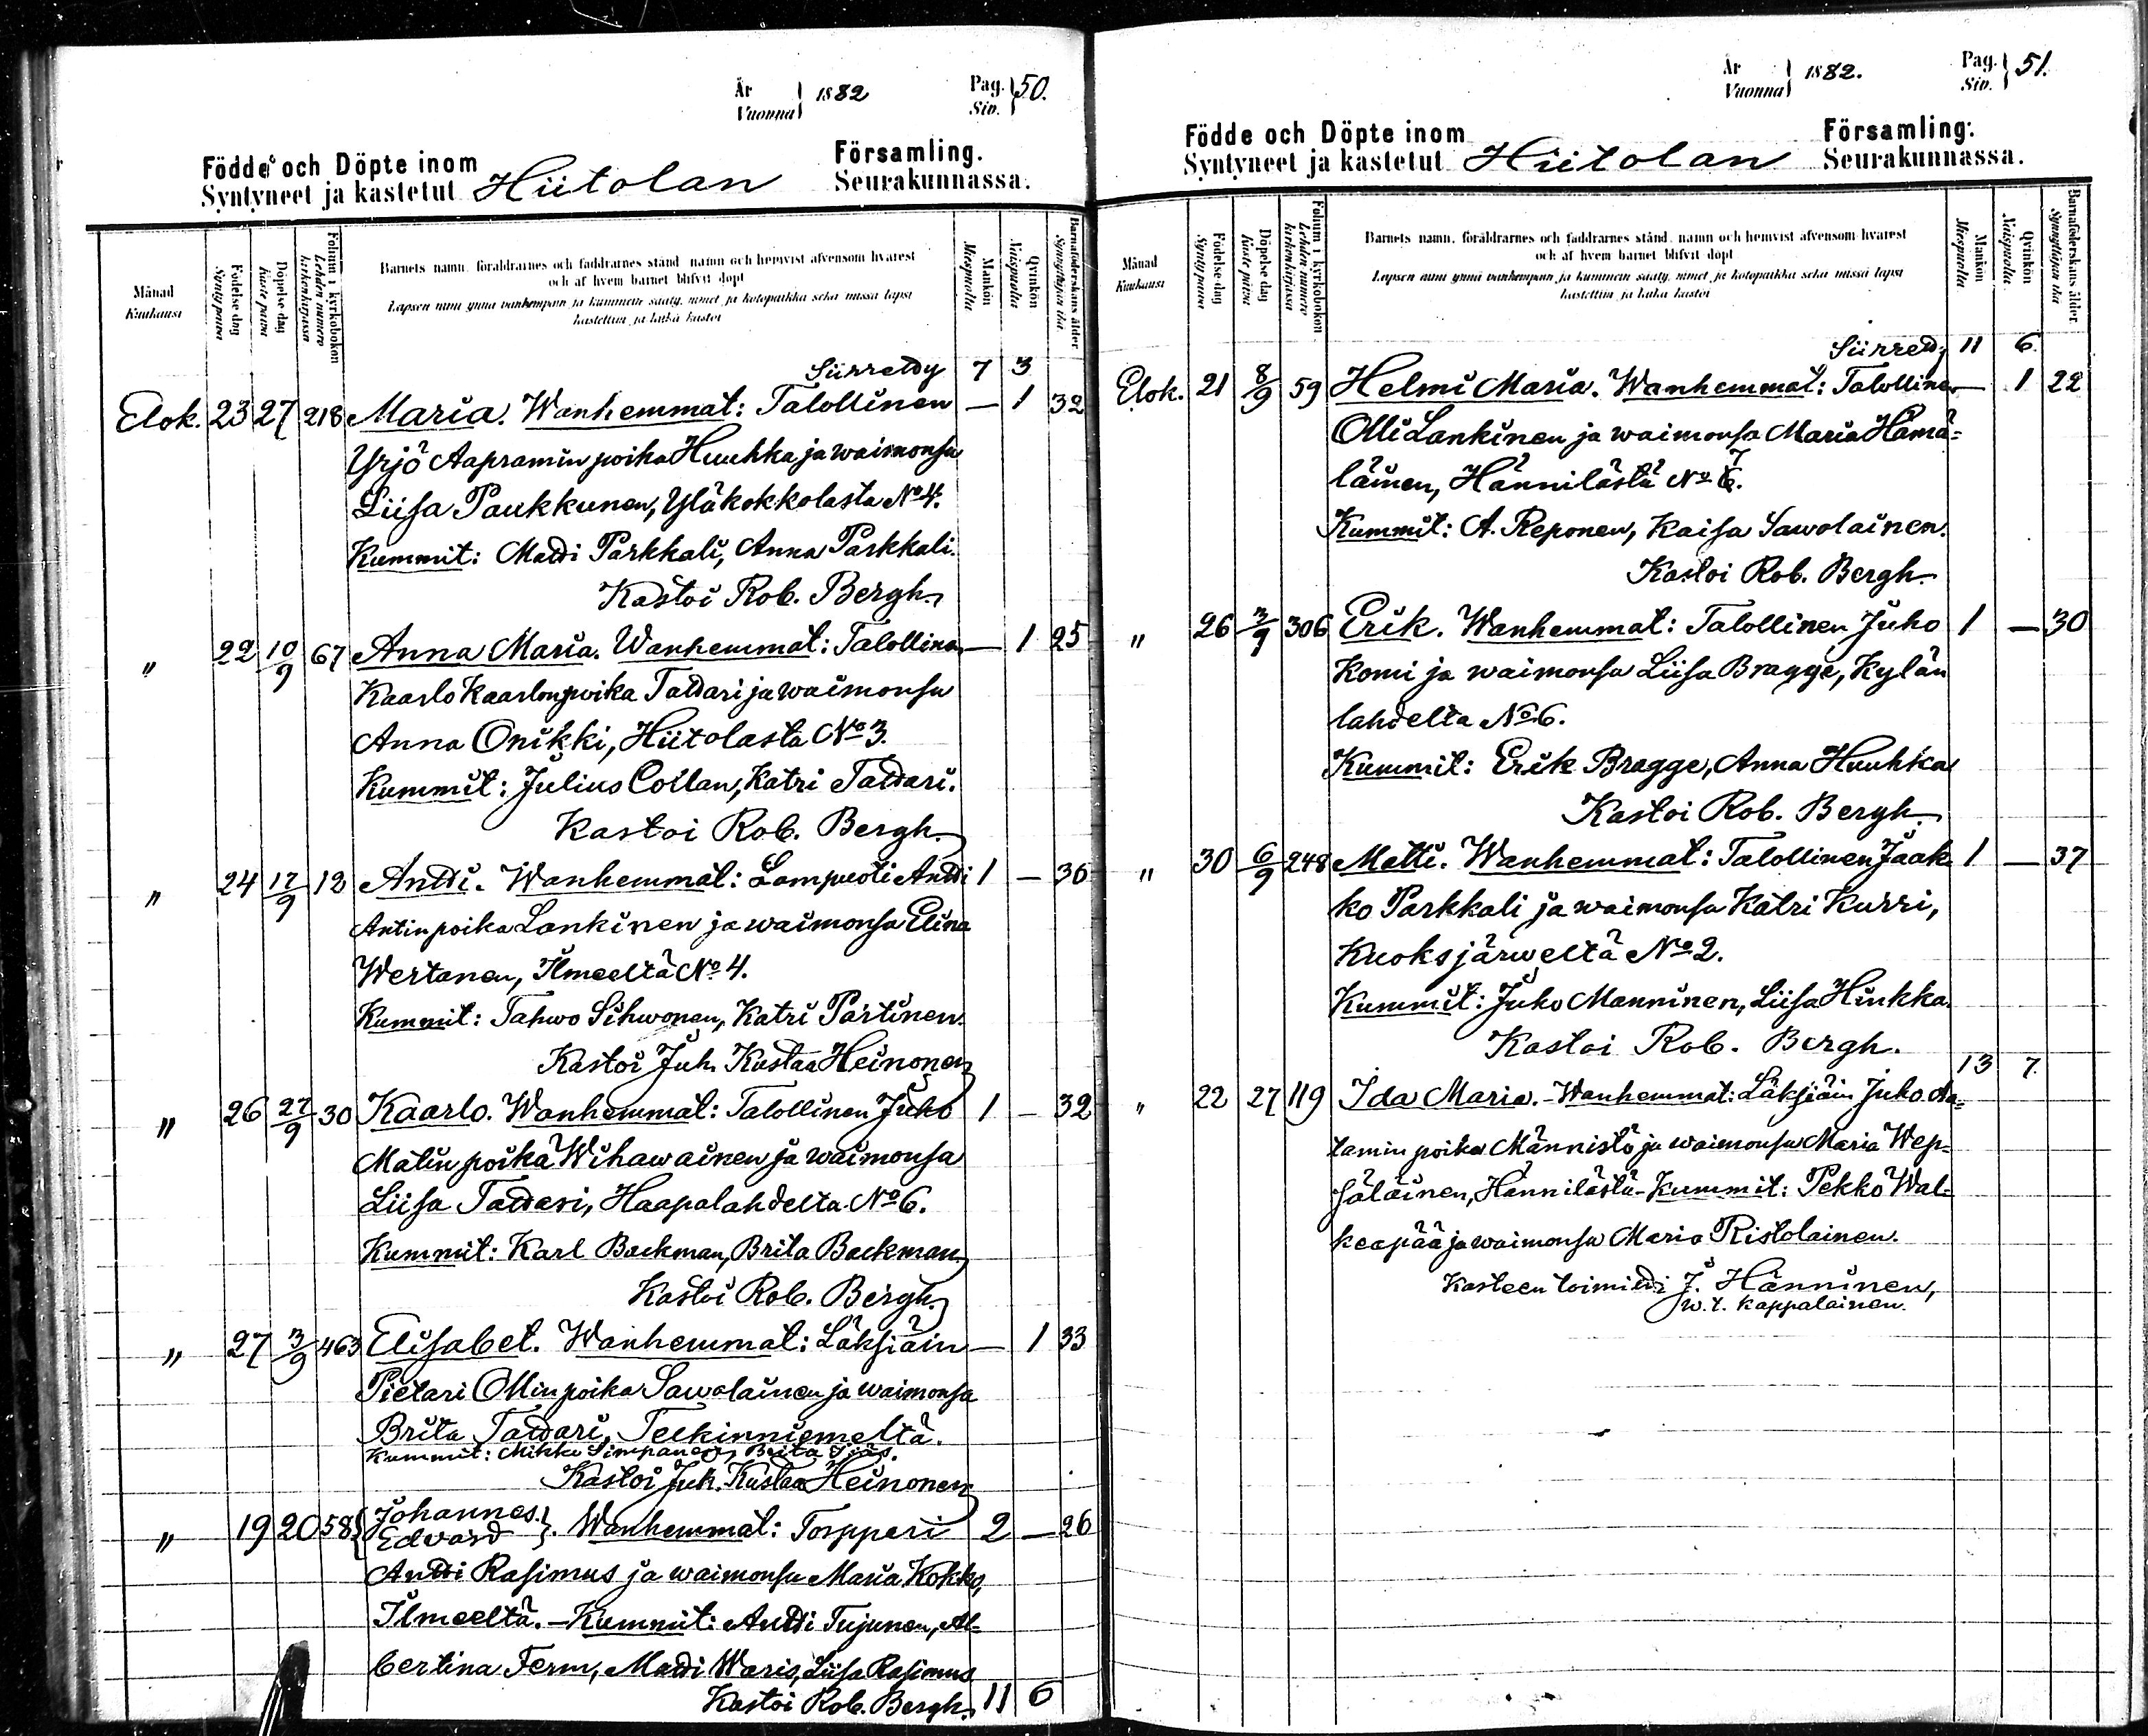 År
Vuonna } 1882
Pag.
Siv. } 50.
Födde och Döpte inom
Syntyneet ja kastetut Hiitolan
Församling.
Seurakunnassa.
Månad
Kuukausi
Födelse-dag
Syntypäivä
Döpelse-dag
Kaste päivä
Folium i kyrkoboken
Lehden numero
kirkonkirjassa
Barnets namn, föräldrarnes och faddrarnes stånd, namn och hemvist äfvensom hvarest
och af hvem barnet blifvit döpt
Lapsen nimi ynnä vanhempain ja kummein sääty, nimet ja kotopaikka sekä missä lapsi
kastettiin ja kuka kastoi
Mankön
Miespuolia
Qvinkön
Naispuolia
Barnaföderskans ålder
Synnyttäjän ikä
Siirretty 7 3
Elok. 23 27 218 Maria. Wanhemmat: Talollinen — 1 32
Yrjö Aapramin poika Huuhka ja waimonsa
Liisa Paukkunen, Yläkokkolasta No 4.
Kummit: Matti Parkkali, Anna Parkkali.
Kastoi Rob. Bergh.
" 22 10/9 67 Anna Maria. Wanhemmat: Talollinen — 1 25
Kaarlo Kaarlonpoika Tattari ja waimonsa
Anna Onikki, Hiitolasta No 3.
Kummit: Julius Collan, Katri Tattari.
Kastoi Rob. Bergh.
" 24 17/9 12 Antti. Wanhemmat: Lampuoti Antti 1 — 36
Antinpoika Lankinen ja waimonsa Elina
Wertanen, Ilmeeltä No 4.
Kummit: Tahwo Sihwonen, Katri Partinen.
Kastoi Juh. Kustaa Heinonen
" 26 27/9 30 Kaarlo. Wanhemmat: Talollinen Juho 1 — 32
Matin poika Wihawainen ja waimonsa
Liisa Tattari, Haapalahdelta No 6.
Kummit: Karl Backman, Brita Backman
Kastoi Rob. Bergh.
" 27 3/9 463 Elisabet. Wanhemmat: Läksiäin — 1 33
Pietari Ollinpoika Sawolainen ja waimonsa
Brita Tattari, Teekinniemeltä.
Kummit: Mikko Simpanen, Brita
Kastoi Juh. Kustaa Heinonen
" 19 20 58 { Johannes.
Edvard }. Wanhemmat: Torppari 2 — 26
Antti Rasimus ja waimonsa Maria Kokko,
Ilmeeltä. — Kummit: Antti Tujunen, Al=
bertina Ferm, Matti Waris, Liisa Rasimus
Kastoi Rob. Bergh. 11 6
År
Vuonna } 1882.
Pag.
Siv. } 51.
Födde och Döpte inom
Syntyneet ja kastetut Hiitolan
Församling.
Seurakunnassa.
Månad
Kuukausi
Födelse-dag
Synty päivä
Döpelse-dag
Kaste päivä
Folium i kyrkoboken
Lehden numero
kirkonkirjassa
Barnets namn, föräldrarnes och faddrarnes stånd, namn och hemvist äfvensom hvarest
och af hvem barnet blifvit döpt
Lapsen nimi ynnä vanhempain ja kummein sääty, nimet ja kotopaikka sekä missä lapsi
kastettiin ja kuka kastoi
Mankön
Miespuolia
Qvinkön
Naispuolia
Barnaföderskans ålder
Synnyttäjän ikä
Siirretty 11 6.
Elok. 21 8/9 59 Helmi Maria. Wanhemmat: Talollinen — 1 22
Olli Lankinen ja waimonsa Maria Hämä=
läinen, Hännilästä No 7.
Kummit: A. Reponen, Kaisa Sawolainen.
Kastoi Rob. Bergh.
" 26 3/9 306 Erik. Wanhemmat: Talollinen Juho 1 — 30
Komi ja waimonsa Liisa Bragge, Kylän
lahdelta No 6.
Kummit: Erik Bragge, Anna Huuhka
Kastoi Rob. Bergh.
" 30 6/9 248 Matti. Wanhemmat: Talollinen Jaak 1 — 37
ko Parkkali ja waimonsa Katri Kurri,
Kuoksjärweltä No 2.
Kummit: Juho Manninen, Liisa Hinkka.
Kastoi Rob. Bergh.
13 7.
" 22 27 119 Ida Maria. - Wanhemmat: Läksiäin Juho Aa=
tamin poika Männistö ja waimonsa Maria Wep=
säläinen, Hännilästä - Kummit: Pekko Wal=
keapää ja waimonsa Maria Ristolainen.
Kasteen toimitti J. Hänninen,
w.t. kappalainen.